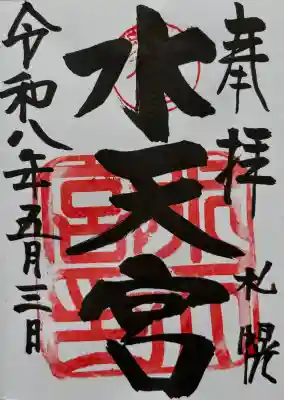 奉拝
札幌
水天宮
令和八年五月三日